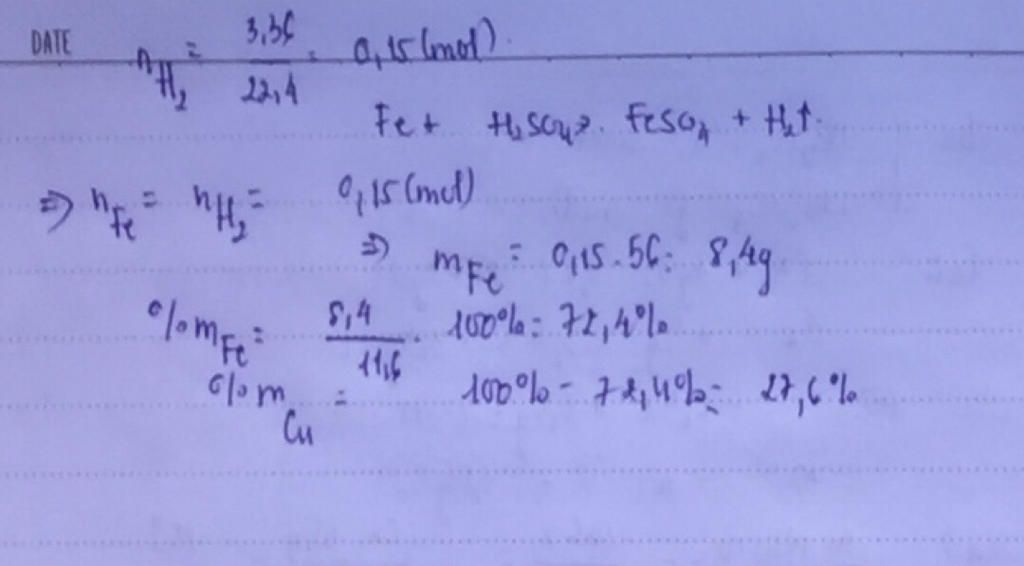 DATE
n_H₂ = 3,36/22,4 = 0,15 (mol).
Fe + H₂SO₄ → FeSO₄ + H₂↑.
⇒ n_Fe = n_H₂ = 0,15 (mol)
⇒ m_Fe = 0,15 . 56 = 8,4g
%m_Fe = 8,4/11,6 . 100% = 72,4%
%m_Cu = 100% - 72,4% = 27,6%